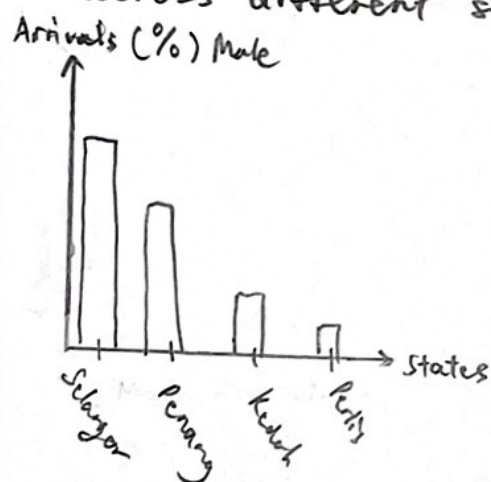 across different s
Arrivals (%) Male
States
Selangor
Penang
Kedah
Perlis